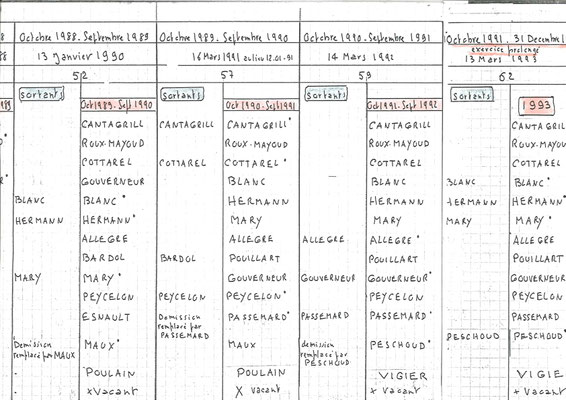 8 Octobre 1988. Septembre 1989 Octobre 1989. Septembre 1990 Octobre 1990. Septembre 1991 Octobre 1991. 31 Decembre 1
exercice prolongé
88 13 Janvier 1990 16 Mars 1991 au lieu 12.01-91 14 Mars 1992 13 Mars 1993
52 57 59 62
sortants sortants sortants sortants
1989 Oct 1989. Sept 1990 Oct 1990-Sept 1991 Oct 1991. Sept 1992 1993
CANTAGRILL CANTAGRILL CANTAGRILL* CANTAGRILL CANTAGRIL
ROUX-MAYOUD ROUX-MAYOUD ROUX-MAYOUD ROUX-MAYO
COTTAREL COTTAREL COTTAREL* COTTAREL COTTAREL
GOUVERNEUR BLANC BLANC BLANC BLANC*
BLANC BLANC* HERMANN HERMANN HERMANN HERMANN*
HERMANN HERMANN* MARY MARY MARY MARY*
ALLEGRE ALLEGRE ALLEGRE ALLEGRE* ALLEGRE
BARDOL BARDOL POUILLART POUILLART POUILLART
MARY MARY* GOUVERNEUR GOUVERNEUR GOUVERNEUR* GOUVERNEUR
PEYCELON PEYCELON PEYCELON* PEYCELON PEYCELON
ESNAULT Démission PASSEMARD* PASSEMARD PASSEMARD* PASSEMARD
remplacé par
PASSEMARD
Demission MAUX* MAUX démission PESCHOUD* PESCHOUD PESCHOUD*
remplacé par MAUX remplacé par
PESCHOUD
POULAIN POULAIN VIGIER VIGIE
x Vacant X vacant x Vacant + Vacant